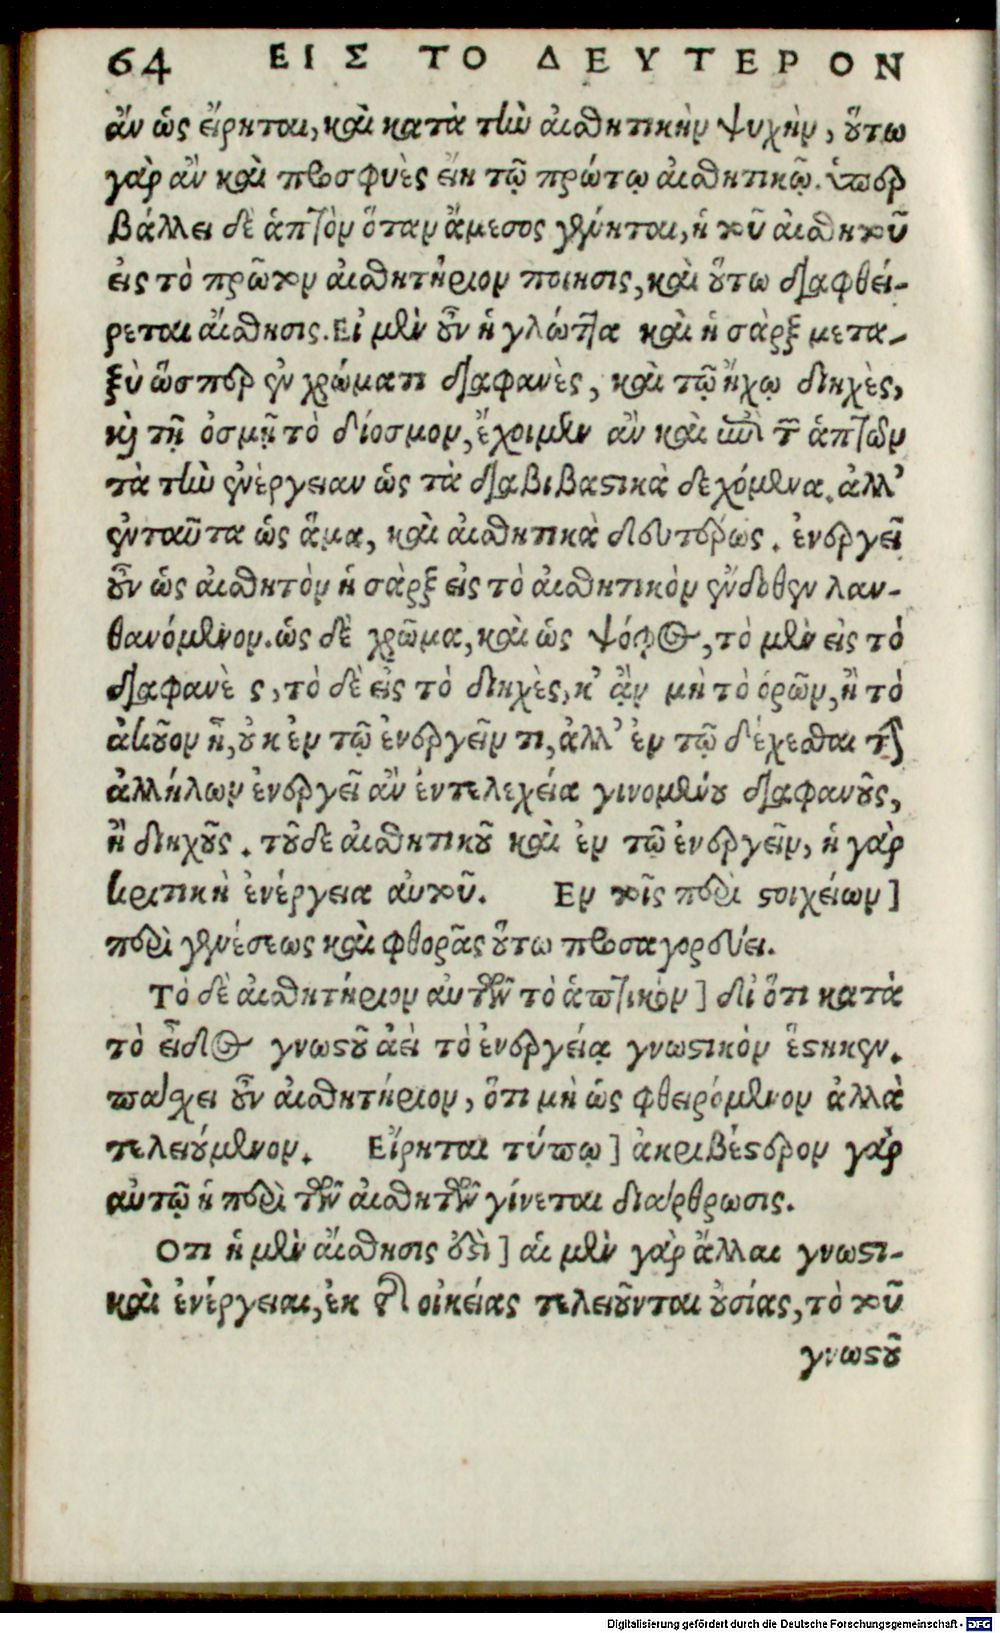 64 ΕΙΣ ΤΟ ΔΕΥΤΕΡΟΝ
ἂν ὡς εἴρηται, καὶ κατὰ τὴν αἰσθητικὴν ψυχὴν, οὕτω
γὰρ ἂν καὶ προσφυὲς εἴη τῷ πρώτῳ αἰσθητικῷ. ὑπερ
βάλλει δὲ ἁπτὸν ὅταν ἄμεσος γένηται, ἡ τοῦ αἰσθητοῦ
εἰς τὸ πρῶτον αἰσθητήριον ποίησις, καὶ οὕτω διαφθεί-
ρεται αἴσθησις. Εἰ μὲν οὖν ἡ γλώττα καὶ ἡ σὰρξ μετα-
ξὺ ὥσπερ ἐν χρώματι διαφανὲς, καὶ τῷ ἤχῳ διηχὲς,
καὶ τῇ ὀσμῇ τὸ δίοσμον, ἔχοιμεν ἂν καὶ ἐπὶ τ ἁπτῶν
τὰ τὴν ἐνέργειαν ὡς τὰ διαβιβαστικὰ δεχόμενα. ἀλλ'
ἐνταῦτα ὡς ἅμα, καὶ αἰσθητικὰ δευτέρως. ἐνεργεῖ
οὖν ὡς αἰσθητὸν ἡ σὰρξ εἰς τὸ αἰσθητικὸν ἔνδοθεν λαν-
θανόμενον. ὡς δὲ χρῶμα, καὶ ὡς ψόφος, τὸ μὲν εἰς τὸ
διαφανὲς, τὸ δὲ εἰς τὸ διηχὲς, κ' ἂν μὴ τὸ ὁρῶν, ἢ τὸ
ἀκοῦον ᾖ, οὐκ ἐν τῷ ἐνεργεῖν τι, ἀλλ' ἐν τῷ δέχεσθαι
ἀλλήλων ἐνεργεῖ ἂν ἐντελεχεία γινομένου διαφανοῦς,
ἢ διηχοῦς. τοῦδε αἰσθητικοῦ καὶ ἐν τῷ ἐνεργεῖν, ἡ γὰρ
κριτικὴ ἐνέργεια αὐτοῦ. Εν τοῖς περὶ στοιχείων]
περὶ γενέσεως καὶ φθορᾶς οὕτω προσαγορεύει.
Τὸ δὲ αἰσθητήριον αὐτῶν τὸ ἁπτικὸν] διότι κατὰ
τὸ εἶδος γνωστοῦ ἀεὶ τὸ ἐνεργείᾳ γνωστικὸν ἕστηκεν.
πάσχει οὖν αἰσθητήριον, ὅτι μὴ ὡς φθειρόμενον ἀλλὰ
τελειούμενον. Εἴρηται τύπῳ] ἀκριβέστερον γὰρ
αὐτῷ ἡ περὶ τῶν αἰσθητῶν γίνεται διάρθρωσις.
Οτι ἡ μὲν αἴσθησις ὅδε] αἱ μὲν γὰρ ἄλλαι γνωστι-
καὶ ἐνέργειαι, ἐκ τῆς οἰκείας τελειοῦνται οὐσίας, τὸ τοῦ
γνωστοῦ
Digitalisierung gefördert durch die Deutsche Forschungsgemeinschaft - DFG